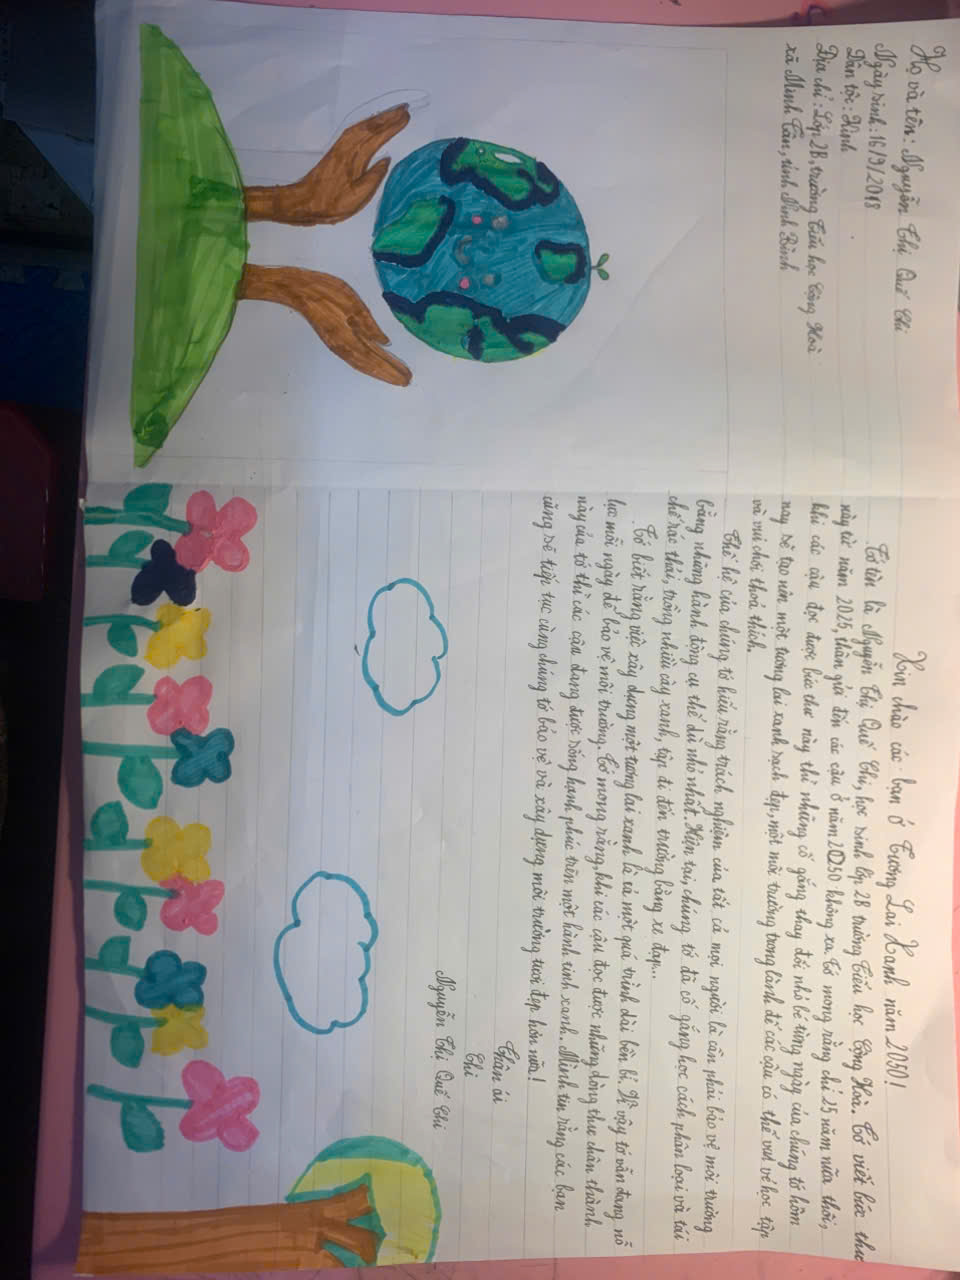 Họ và tên: Nguyễn Thị Quế Chi
Ngày sinh: 16/9/2018
Dân tộc: Kinh
Địa chỉ: Lớp 2B, trường Tiểu học Cộng Hoà
xã Minh Tân, tỉnh Ninh Bình
Xin chào các bạn ở Tương Lai Xanh năm 2050!
Tớ tên là Nguyễn Thị Quế Chi, học sinh lớp 2B trường Tiểu học Cộng Hoà. Tớ viết bức thư
này từ năm 2025, thân gửi đến các cậu ở năm 2050 không xa. Tớ mong rằng chỉ 25 năm nữa thôi,
khi các cậu đọc được bức thư này thì những cố gắng thay đổi nhỏ bé từng ngày của chúng tớ hôm
nay sẽ tạo nên một tương lai xanh sạch đẹp, một môi trường trong lành để các cậu có thể vui vẻ học tập
và vui chơi thoả thích.
Thế hệ của chúng tớ hiểu rằng trách nghiệm của tất cả mọi người là cần phải bảo vệ môi trường
bằng những hành động cụ thể dù nhỏ nhất. Hiện tại, chúng tớ đã cố gắng học cách phân loại và tái
chế rác thải, trồng nhiều cây xanh, tập đi đến trường bằng xe đạp...
Tớ biết rằng việc xây dựng một tương lai xanh là cả một quá trình dài bền bỉ. Vì vậy tớ vẫn đang nỗ
lực mỗi ngày để bảo vệ môi trường. Tớ mong rằng, khi các cậu đọc được những dòng thư chân thành
này của tớ thì các cậu đang được sống hạnh phúc trên một hành tinh xanh. Mình tin rằng các bạn
cũng sẽ tiếp tục cùng chúng tớ bảo vệ và xây dựng môi trường tươi đẹp hơn nữa!
Thân ái
Chi
Nguyễn Thị Quế Chi